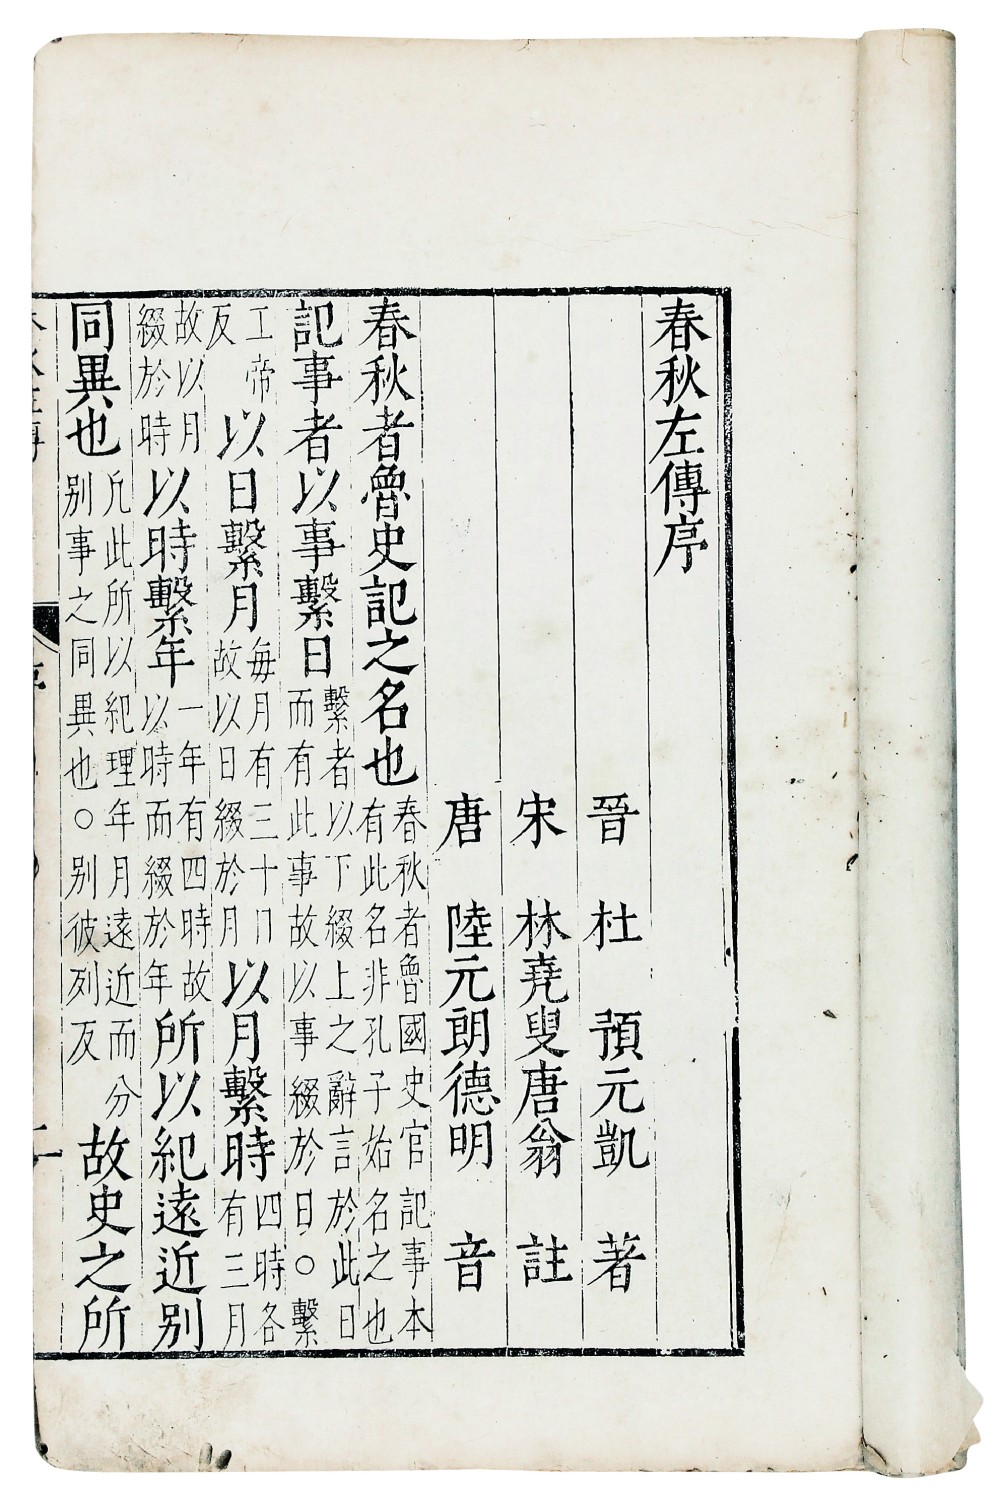 春秋左傳序
晉 杜 預元凱 著
宋 林堯叟唐翁 註
唐 陸元朗德明 音
春秋者魯史記之名也 春秋者魯國史官記事本 有此名非孔子始名之也
記事者以事繫日 繫者以下綴上之辭言於此日 而有此事故以事綴於日○繫
工帝 反 以日繫月 每月有三十日 故以日綴於月 以月繫時 四時各 有三月
故以月 綴於時 以時繫年 一年有四時故 以時而綴於年 所以紀遠近別
同異也 凡此所以紀理年月遠近而分 別事之同異也○別彼列反 故史之所